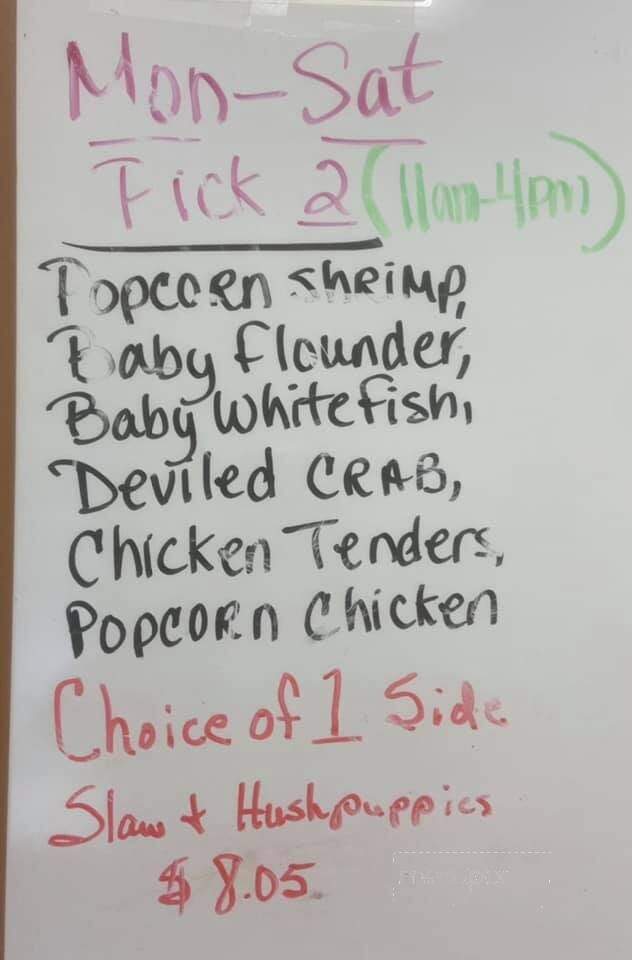 Mon-Sat
Pick 2 (11am-4pm)
Popcorn shrimp,
Baby flounder,
Baby Whitefish,
Deviled CRAB,
Chicken Tenders,
POPCORn Chicken
Choice of 1 Side
Slaw + Hushpuppies
$ 8.05